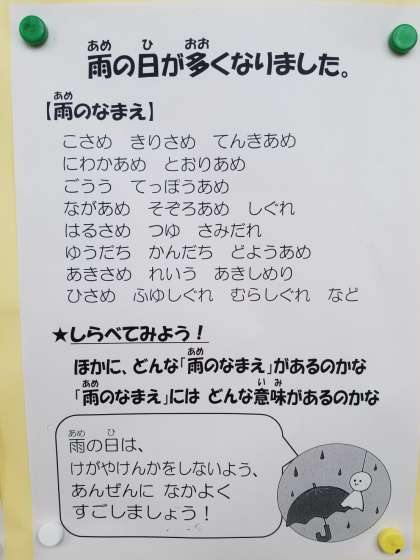 雨の日が多くなりました。
【雨のなまえ】
こさめ　きりさめ　てんきあめ
にわかあめ　とおりあめ
ごうう　てっぽうあめ
ながあめ　そぞろあめ　しぐれ
はるさめ　つゆ　さみだれ
ゆうだち　かんだち　どようあめ
あきさめ　れいう　あきしめり
ひさめ　ふゆしぐれ　むらしぐれ　など
★しらべてみよう！
ほかに、どんな「雨のなまえ」があるのかな
「雨のなまえ」には どんな意味があるのかな
雨の日は、
けがやけんかをしないよう、
あんぜんに なかよく
すごしましょう！